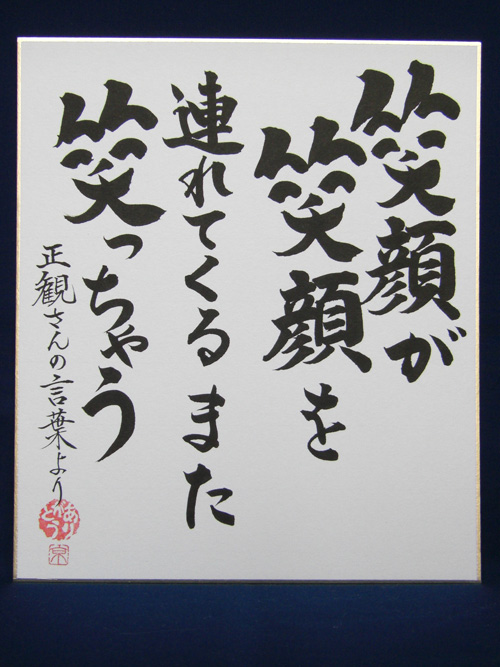 笑顔が
笑顔を
連れてくるまた
笑っちゃう
正観さんの言葉より
ありがとう